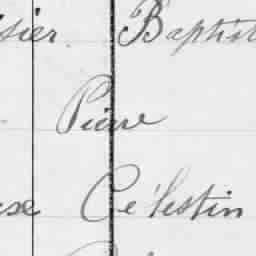 sier Baptist
Pierre
se Célestin